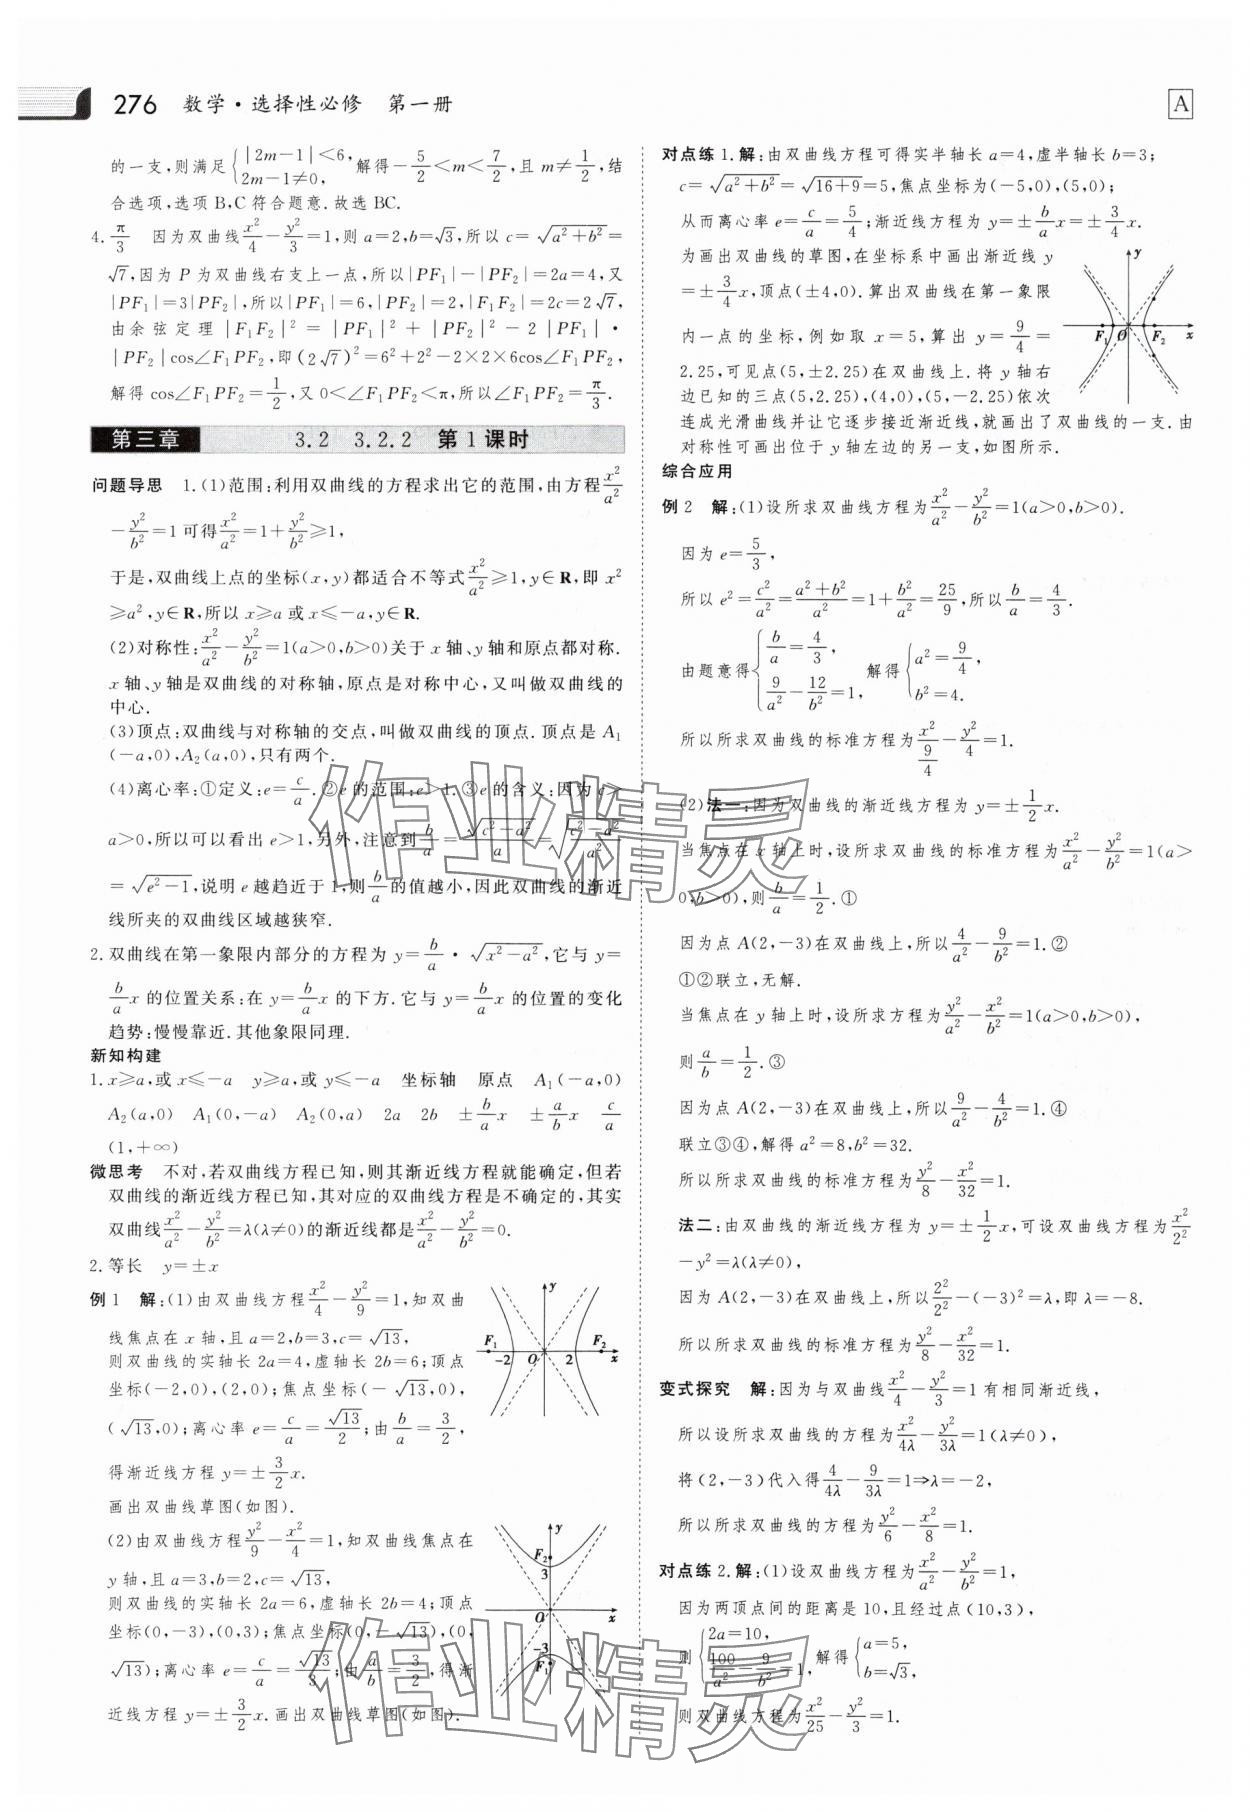 276 数学·选择性必修 第一册
A
的一支,则满足{|2m-1|<6, 2m-1≠0, 解得-5/2<m<7/2,且 m≠1/2,结
合选项,选项 B,C 符合题意.故选 BC.
4. π/3 因为双曲线x²/4-y²/3=1,则 a=2,b=√3,所以 c=√(a²+b²)=
√7,因为 P 为双曲线右支上一点,所以|PF₁|-|PF₂|=2a=4,又
|PF₁|=3|PF₂|,所以|PF₁|=6,|PF₂|=2,|F₁F₂|=2c=2√7,
由余弦定理|F₁F₂|²=|PF₁|²+|PF₂|²-2|PF₁|·
|PF₂|cos∠F₁PF₂,即(2√7)²=6²+2²-2×2×6cos∠F₁PF₂,
解得 cos∠F₁PF₂=1/2,又 0<∠F₁PF₂<π,所以∠F₁PF₂=π/3.
第三章 3.2 3.2.2 第1课时
问题导思 1.(1)范围:利用双曲线的方程求出它的范围,由方程x²/a²
-y²/b²=1 可得x²/a²=1+y²/b²≥1,
于是,双曲线上点的坐标(x,y)都适合不等式x²/a²≥1,y∈R,即 x²
≥a²,y∈R,所以 x≥a 或 x≤-a,y∈R.
(2)对称性:x²/a²-y²/b²=1(a>0,b>0)关于 x 轴、y 轴和原点都对称.
x 轴、y 轴是双曲线的对称轴,原点是对称中心,又叫做双曲线的
中心.
(3)顶点:双曲线与对称轴的交点,叫做双曲线的顶点.顶点是 A₁
(-a,0),A₂(a,0),只有两个.
(4)离心率:①定义:e=c/a.②e 的范围:e>1.③e 的含义:因为 c>
a>0,所以可以看出 e>1,另外,注意到b/a=√(c²-a²)/a=√((c²-a²)/a²)
=√(e²-1),说明 e 越趋近于 1,则b/a的值越小,因此双曲线的渐近
线所夹的双曲线区域越狭窄.
2.双曲线在第一象限内部分的方程为 y=b/a·√(x²-a²),它与 y=
b/a x 的位置关系:在 y=b/a x 的下方.它与 y=b/a x 的位置的变化
趋势:慢慢靠近.其他象限同理.
新知构建
1.x≥a,或 x≤-a y≥a,或 y≤-a 坐标轴 原点 A₁(-a,0)
A₂(a,0) A₁(0,-a) A₂(0,a) 2a 2b ±b/a x ±a/b x c/a
(1,+∞)
微思考 不对,若双曲线方程已知,则其渐近线方程就能确定,但若
双曲线的渐近线方程已知,其对应的双曲线方程是不确定的,其实
双曲线x²/a²-y²/b²=λ(λ≠0)的渐近线都是x²/a²-y²/b²=0.
2.等长 y=±x
例 1 解:(1)由双曲线方程x²/4-y²/9=1,知双曲
线焦点在 x 轴,且 a=2,b=3,c=√13,
则双曲线的实轴长 2a=4,虚轴长 2b=6;顶点
坐标(-2,0),(2,0);焦点坐标(-√13,0),
(√13,0);离心率 e=c/a=√13/2;由b/a=3/2,
得渐近线方程 y=±3/2 x.
画出双曲线草图(如图).
y F₁ F₂ -2 O 2 x
(2)由双曲线方程y²/9-x²/4=1,知双曲线焦点在
y 轴,且 a=3,b=2,c=√13,
则双曲线的实轴长 2a=6,虚轴长 2b=4;顶点
坐标(0,-3),(0,3);焦点坐标(0,-√13),(0,
√13);离心率 e=c/a=√13/3;由a/b=3/2,得渐
近线方程 y=±3/2 x.画出双曲线草图(如图).
y F₂ 3 O x -3 F₁
对点练 1.解:由双曲线方程可得实半轴长 a=4,虚半轴长 b=3;
c=√(a²+b²)=√(16+9)=5,焦点坐标为(-5,0),(5,0);
从而离心率 e=c/a=5/4;渐近线方程为 y=±b/a x=±3/4 x.
为画出双曲线的草图,在坐标系中画出渐近线 y
=±3/4 x,顶点(±4,0).算出双曲线在第一象限
内一点的坐标,例如取 x=5,算出 y=9/4=
2.25,可见点(5,±2.25)在双曲线上.将 y 轴右
边已知的三点(5,2.25),(4,0),(5,-2.25)依次
连成光滑曲线并让它逐步接近渐近线,就画出了双曲线的一支.由
对称性可画出位于 y 轴左边的另一支,如图所示.
y F₁ O F₂ x
综合应用
例 2 解:(1)设所求双曲线方程为x²/a²-y²/b²=1(a>0,b>0).
因为 e=5/3,
所以 e²=c²/a²=(a²+b²)/a²=1+b²/a²=25/9,所以b/a=4/3.
由题意得{b/a=4/3, 9/a²-12/b²=1, 解得{a²=9/4, b²=4.
所以所求双曲线的标准方程为x²/(9/4)-y²/4=1.
(2)法一:因为双曲线的渐近线方程为 y=±1/2 x.
当焦点在 x 轴上时,设所求双曲线的标准方程为x²/a²-y²/b²=1(a>
0,b>0),则b/a=1/2.①
因为点 A(2,-3)在双曲线上,所以4/a²-9/b²=1.②
①②联立,无解.
当焦点在 y 轴上时,设所求方程为y²/a²-x²/b²=1(a>0,b>0),
则a/b=1/2.③
因为点 A(2,-3)在双曲线上,所以9/a²-4/b²=1.④
联立③④,解得 a²=8,b²=32.
所以所求双曲线的标准方程为y²/8-x²/32=1.
法二:由双曲线的渐近线方程为 y=±1/2 x,可设双曲线方程为x²/2²
-y²=λ(λ≠0),
因为 A(2,-3)在双曲线上,所以2²/2²-(-3)²=λ,即 λ=-8.
所以所求双曲线的标准方程为y²/8-x²/32=1.
变式探究 解:因为与双曲线x²/4-y²/3=1 有相同渐近线,
所以设所求双曲线的方程为x²/4λ-y²/3λ=1(λ≠0),
将(2,-3)代入得4/4λ-9/3λ=1⇒λ=-2,
所以所求双曲线的方程为y²/6-x²/8=1.
对点练 2.解:(1)设双曲线方程为x²/a²-y²/b²=1,
因为两顶点间的距离是 10,且经过点(10,3),
则{2a=10, 100/a²-9/b²=1, 解得{a=5, b=√3,
则双曲线方程为x²/25-y²/3=1.
作业精灵
作业精灵